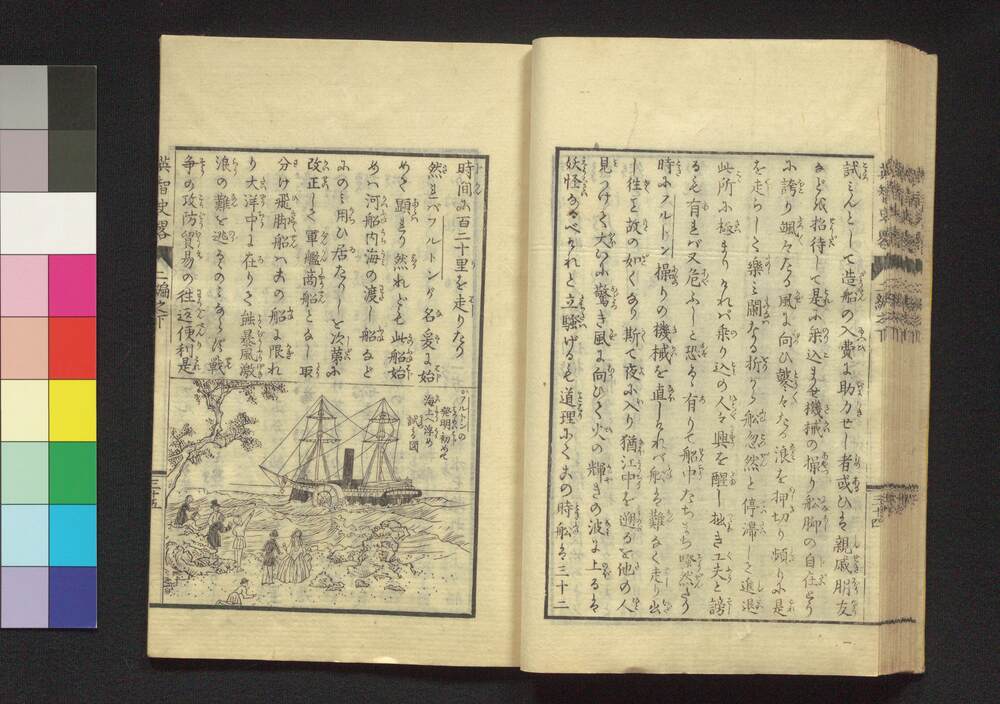 試ミんとして造船の入費に助力せし者或ひは親戚朋友
など招待して是に乗込ませ機械の操り船脚の自在なる
に誇り颯々たる風に向ひ鑿々たる浪を押切り頻りに是
を走らして樂ミ闌なる折から舩忽然と停滞して進退
此所に極まりけれバ乗り込の人々興を醒し拙き工夫と謗
るも有れバ又危ふしと恐るゝ有りて船中たちまち騒然たり
時にフルトン操りの機械を直しけれバ舩は難なく走り出
し徃こと故の如くなり斯て夜に入り猶江中を遡るを他の人
見つけて大ひに驚き風に向ひて火の輝きの波に上るは
妖怪なるべけれと立騒げるも道理にて其の時舩は三十二
時間に百二十里を走りたり
然れバフルトンが名爰に始
めて顕ハる然れども此船始
めハ河船内海の渡し船など
にのミ用ひ居たりしを次第に
改正して軍艦商船となし取
分け飛脚船ハ其の船に限れ
り大洋中に在りて無暴風激
浪の難を逃るゝのミならず戦
争の攻防貿易の徃返便利是
フルトンの
發明初めて
海上に浮め
試る図
英智史畧
二編之下
三十五